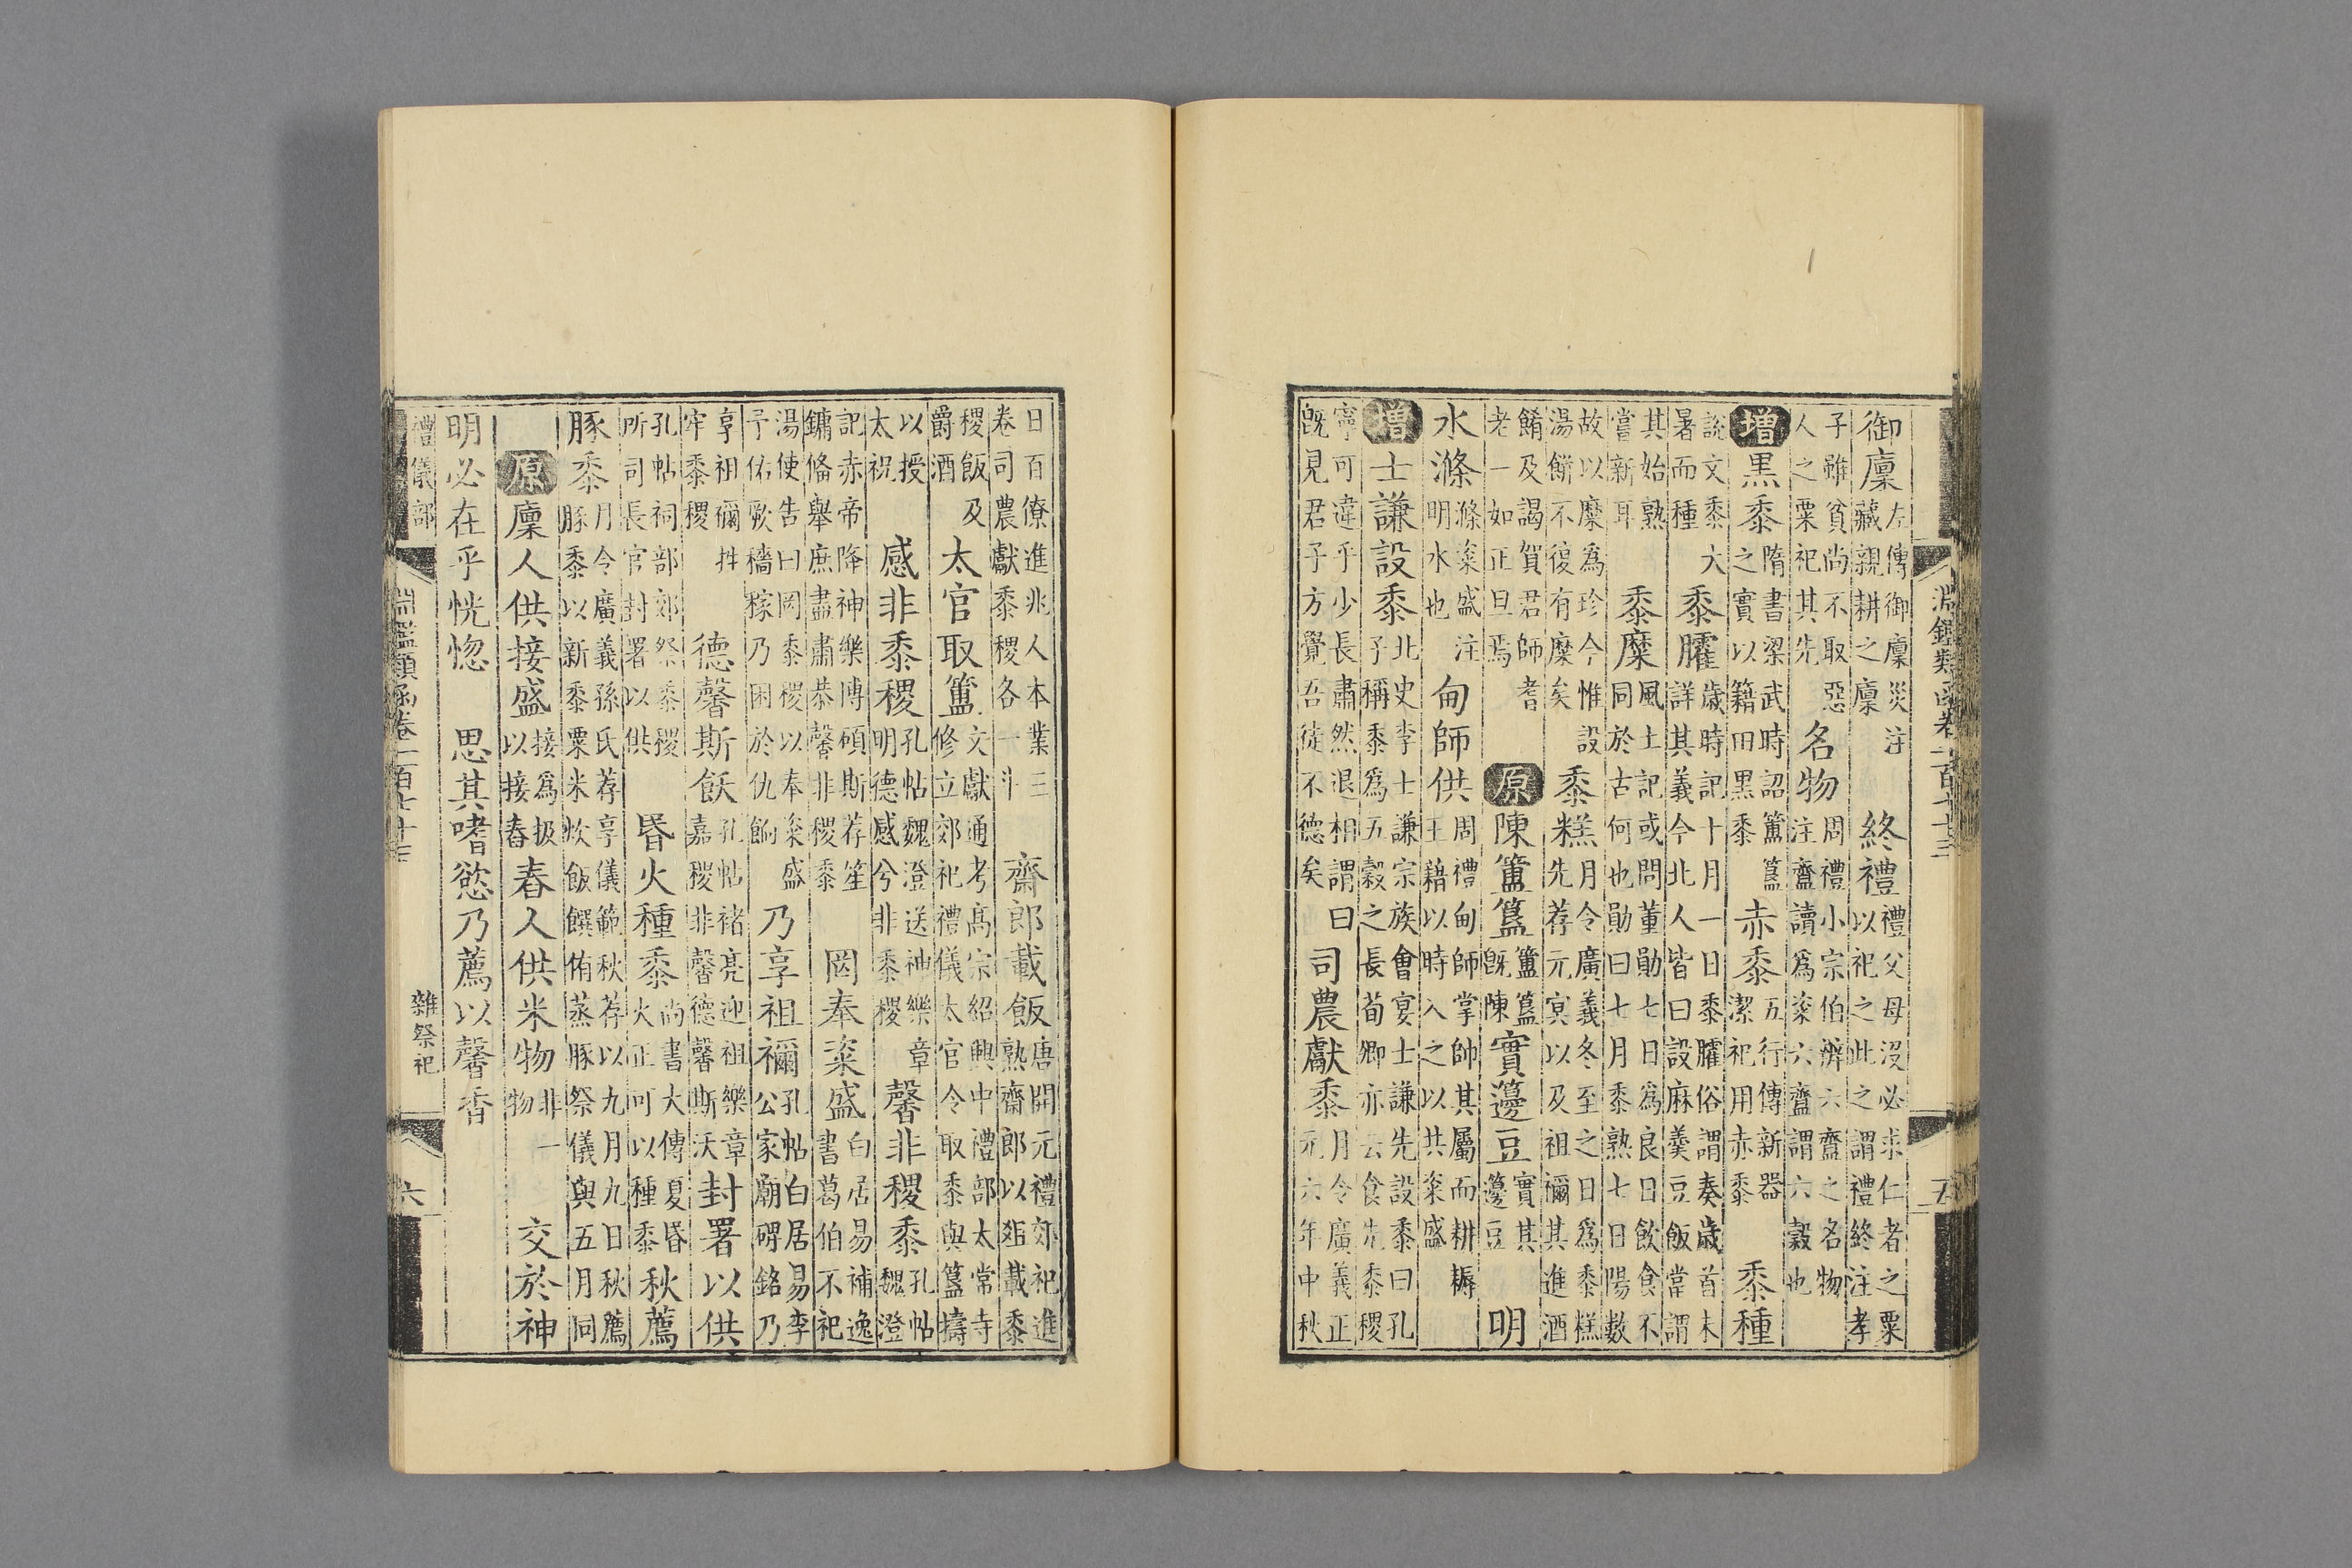 淵鑑類函卷一百七十三 五
御廩 左傳御廩災注藏親耕之廩 終禮 禮父母沒必求仁者之粟以祀之此之謂禮終注孝
子雖貧尚不取惡人之粟祀其先 名物 周禮小宗伯辨六齍之名物注齍讀爲粢六齍謂六穀也
增 黑黍 隋書梁武時詔簠簋之實以籍田黑黍 赤黍 五行傳新器潔祀用赤黍 黍種
說文黍大暑而種 黍臛 歲時記十月一日黍臛俗謂奏歲首未詳其義今北人皆曰設麻羹豆飯當謂
其始熟嘗新耳 黍糜 風土記或問董勛七日爲良日飲食不同於古何也勛曰七月黍熟七日陽數
故以糜爲珍今惟設湯餅不復有糜矣 黍糕 月令廣義冬至之日爲黍糕先荐元冥以及祖禰其進酒
餚及謁賀君師耆老一如正旦焉 原 陳簠簋 簠簋旣陳 實籩豆 實其籩豆 明
水滌 滌粢盛注明水也 甸師供 周禮甸師掌帥其屬而耕耨王藉以時入之以共粢盛
增 士謙設黍 北史李士謙宗族會宴士謙先設黍曰孔子稱黍爲五穀之長荀卿亦云食先黍稷
寧可違乎少長肅然退相謂曰旣見君子方覺吾徒不德矣 司農獻黍 月令廣義正元六年中秋
日百僚進兆人本業三卷司農獻黍稷各一斗 齋郎載飯 唐開元禮郊祀進熟齋郎以俎載黍
稷飯及爵酒 太官取簠 文獻通考高宗紹興中禮部太常寺修立郊祀禮儀太官令取黍與簋擣
以授太祝 感非黍稷 孔帖魏澄送神樂章明德感兮非黍稷 馨非稷黍 孔帖魏澄
記赤帝降神樂博碩斯荐笙鏞俻舉庶盡肅恭馨非稷黍 罔奉粢盛 白居易補逸書葛伯不祀
湯使告曰罔黍稷以奉粢盛予佑厥穡稼乃困於仇餉 乃享祖禰 孔帖白居易李公家廟碑銘乃
享祖禰牲牢黍稷 德馨斯飫 孔帖褚亮迎祖樂章嘉稷非馨德馨斯沃 封署以供
孔帖祠部郊祭黍稷所司長官封署以供 昏火種黍 尚書大傳夏昏火正可以種黍 秋薦
豚黍 月令廣義孫氏荐享儀範秋荐以九月九日秋薦豚黍以新黍粟米炊飯饌侑蒸豚祭儀與五月同
原 廩人供接盛 接爲扱以接舂 舂人供米物 非一物 交於神
明必在乎恍惚 思其嗜慾乃薦以馨香
禮儀部 淵鑑類函卷一百七十三 雜祭祀 六